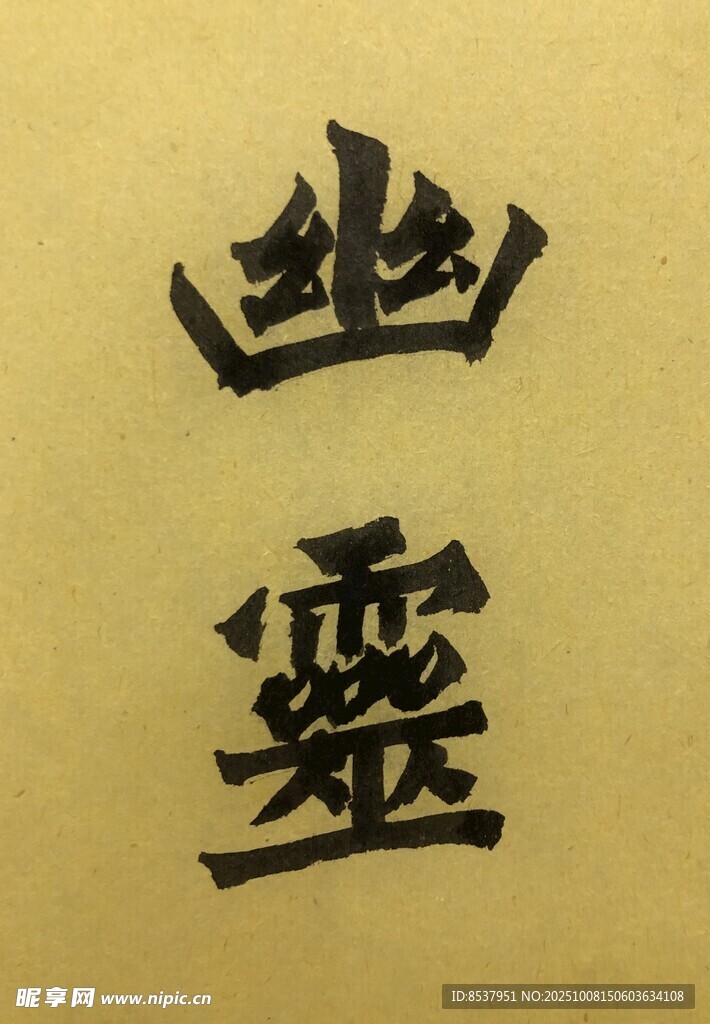 幽
靈
昵享网 www.nipic.cn
ID:8537951 NO:20251008150603634108